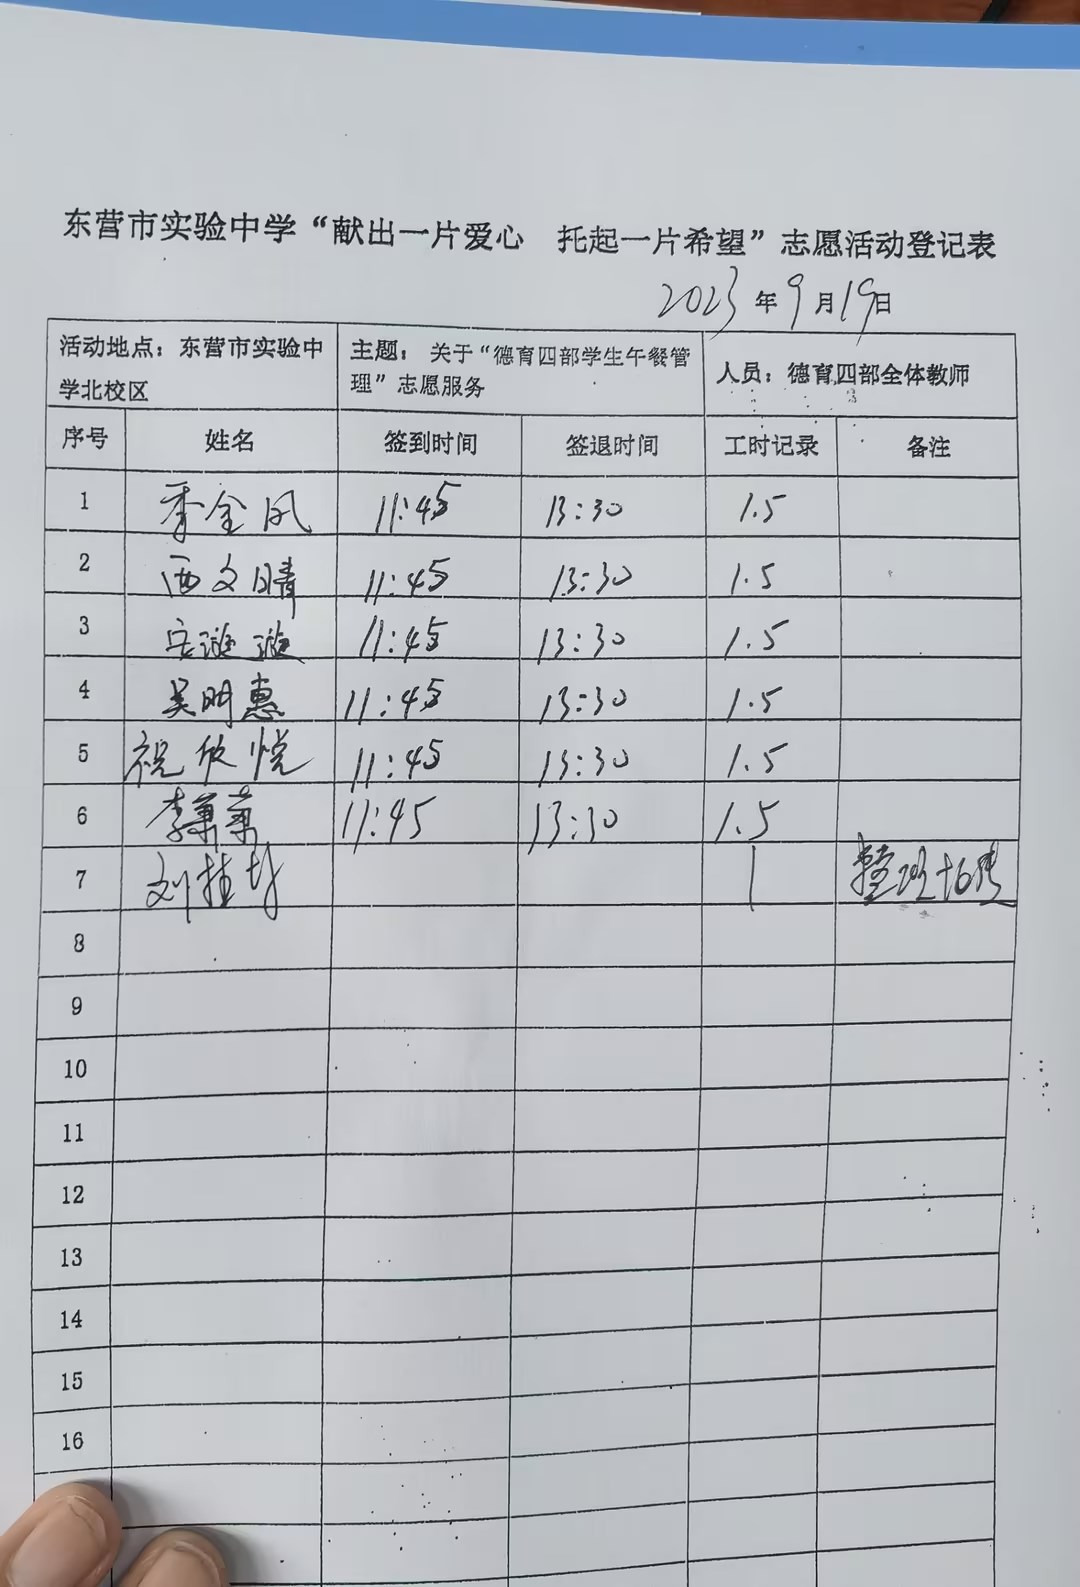 东营市实验中学“献出一片爱心 托起一片希望”志愿活动登记表
2023年9月19日
活动地点：东营市实验中学北校区 主题：关于“德育四部学生午餐管理”志愿服务 人员：德育四部全体教师
序号 姓名 签到时间 签退时间 工时记录 备注
1 季金凤 11:45 13:30 1.5
2 西文晴 11:45 13:30 1.5
3 安漩漩 11:45 13:30 1.5
4 吴明惠 11:45 13:30 1.5
5 祝欣悦 11:45 13:30 1.5
6 李萧萧 11:45 13:30 1.5
7 刘桂 1
8
9
10
11
12
13
14
15
16